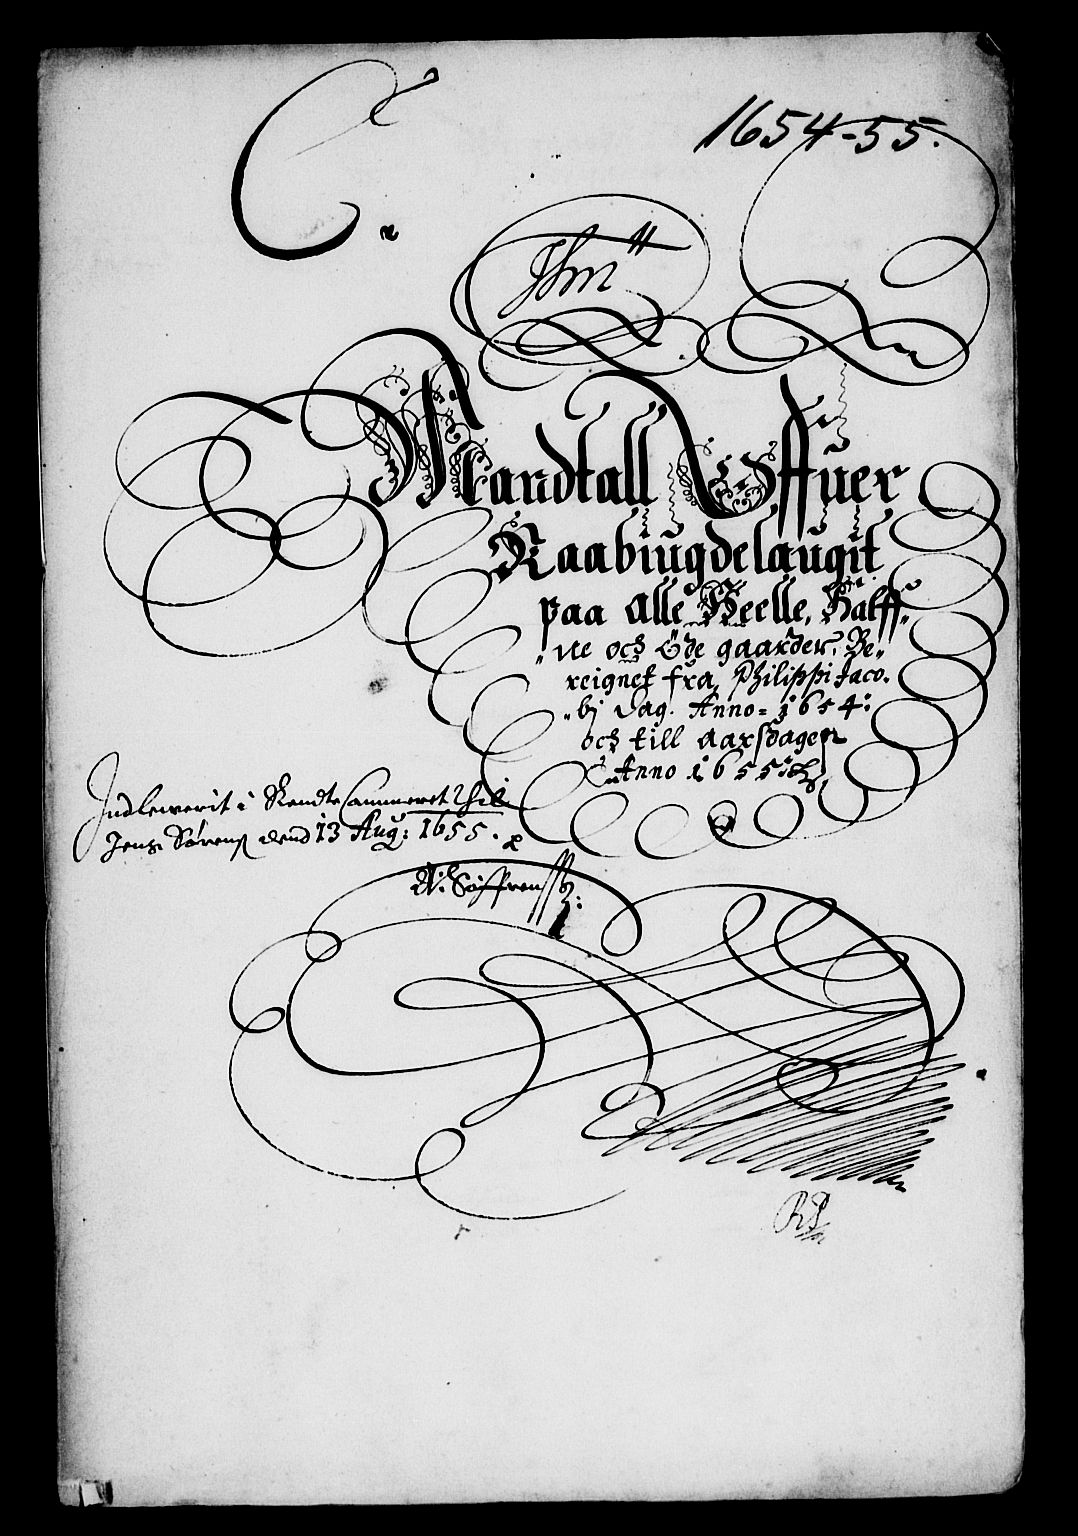 C.
1654-55.
Mandtall Offuer
Raabiugdelaugit
paa Alle Heelle, Halff„
„ue och Öde gaarder, Be„
reignet fra Philippi Jaco.
„bj Dag. Anno= 1654:
och till Aarsdagen
Anno 1655:
Indleverit i Rendte Cammeret thil
Jens Sørens dend 13 Aug: 1655.
N: Søffrens